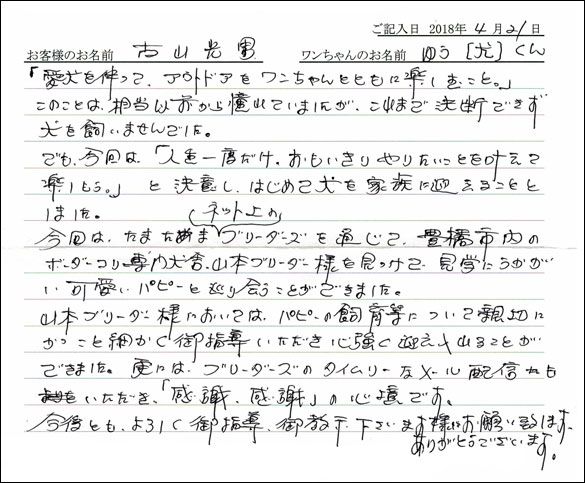 ご記入日 2018年 4月21日
お客様のお名前 古山光男 ワンちゃんのお名前 ゆう[尤]くん
「愛犬を伴って、アウトドアをワンちゃんとともに楽しむこと。」
このことは、相当以前から憧れていましたが、これまで決断できず
犬を飼いませんでした。
でも、今回は、「人生一度だけ、おもいきりやりたいことを叶えて
楽しもう。」と決意し、はじめて犬を家族に迎えることと
しました。
(ネット上の)
今回は、たまたまブリーダーズを通じて、豊橋市内の
ボーダーコリー専門犬舎、山本ブリーダー様を見つけて、見学にうかが
い可愛いパピーと巡り会うことができました。
山本ブリーダー様においては、パピーの飼育等について親切に
かつこと細かく御指導いただき心強く迎え入れることが
できました。更には、ブリーダーズのタイムリーなメール配信も
いただき、「感謝、感謝」の心境です。
今後とも、よろしく御指導、御教示下さいます様にお願い致します。
ありがとうございます。